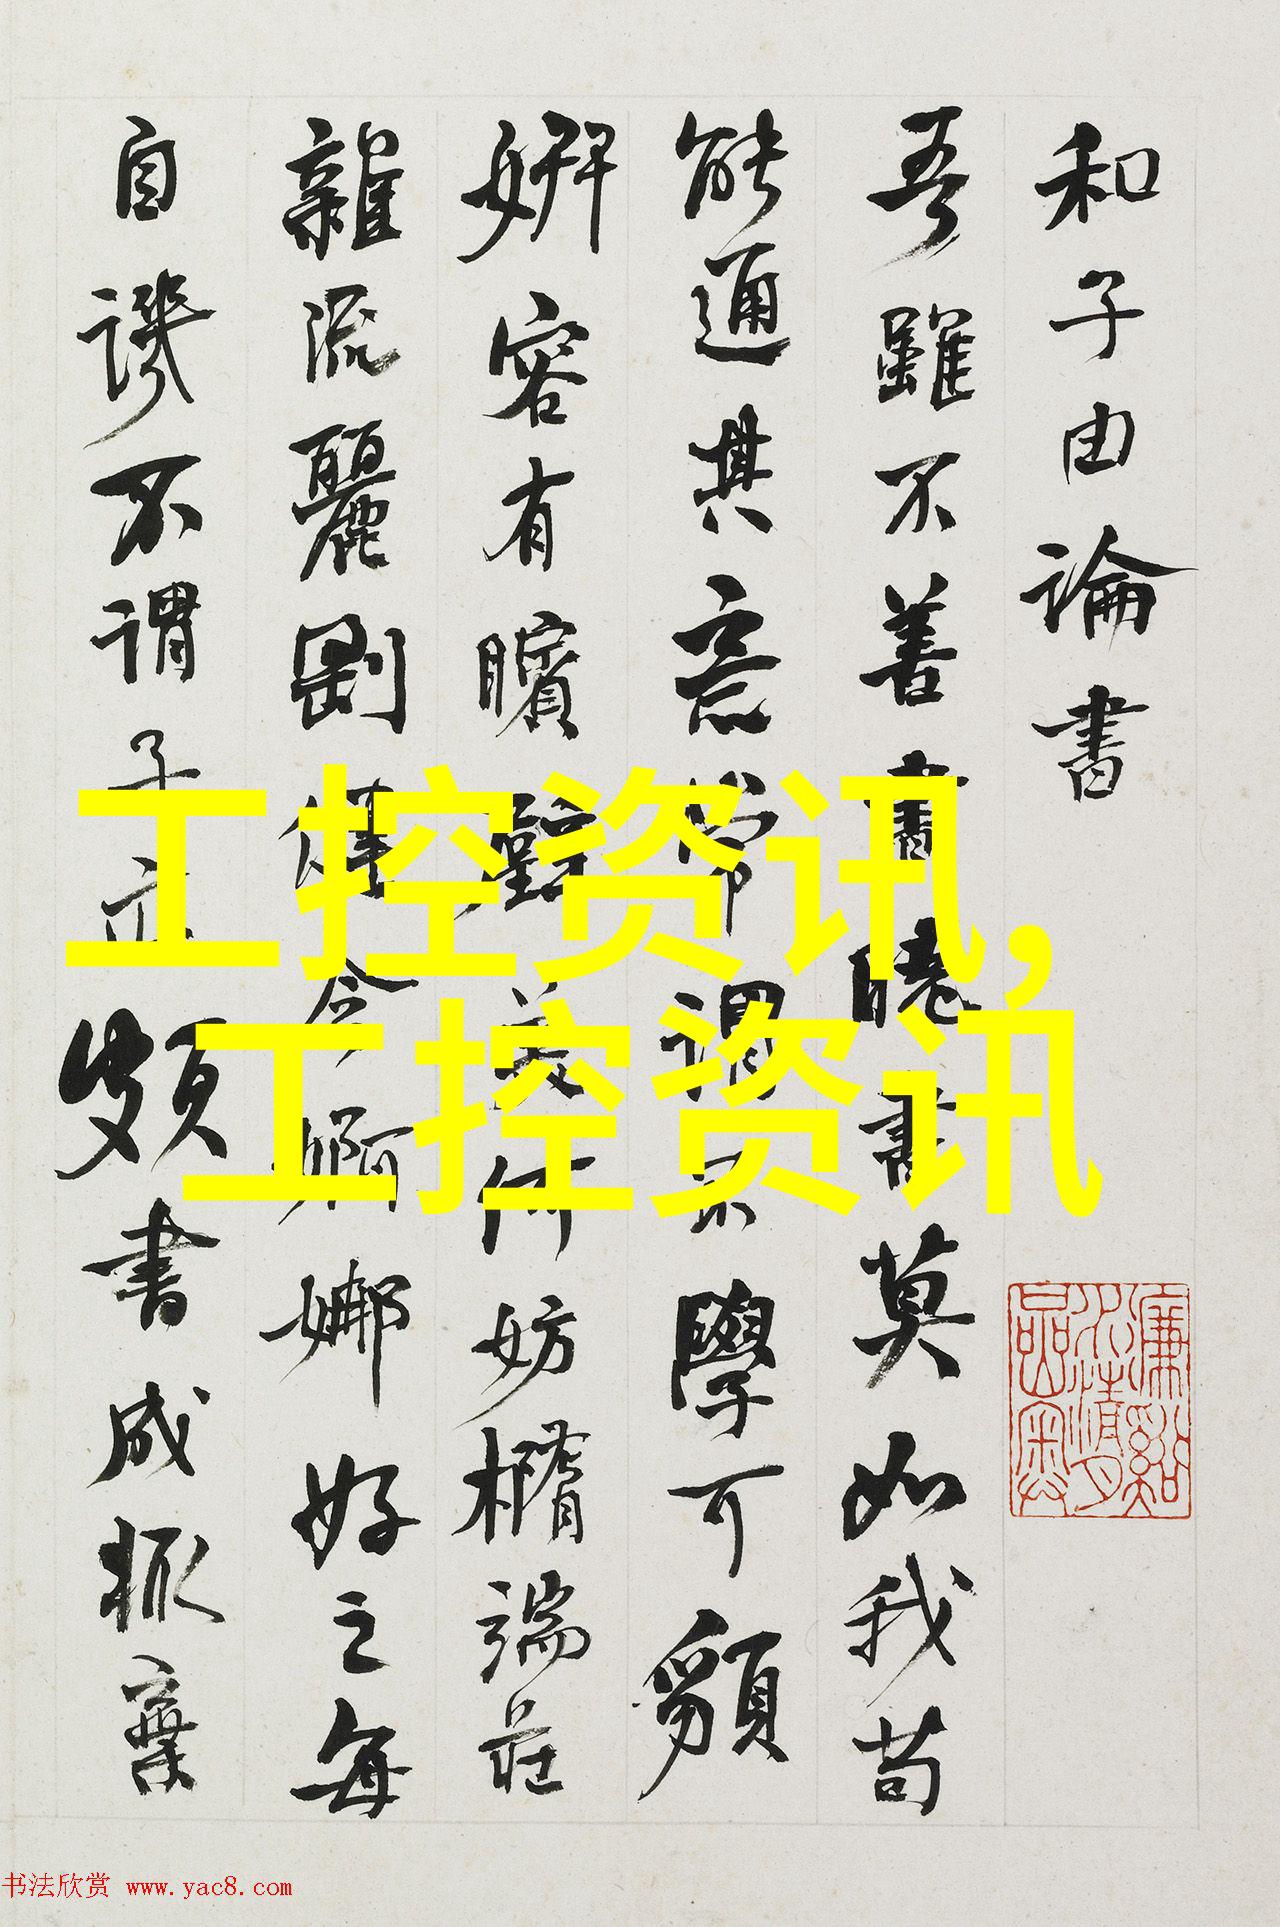 和子由論書
吾雖不善書曉書莫如我苟
能通其意常謂不學可䫉
妍容有矉璧美何妨橢端莊
雜流麗剛健含婀娜好之每
自譏不謂子亦頗書成輒棄
工控资讯,
工控资讯
书法欣赏 www.yac8.com